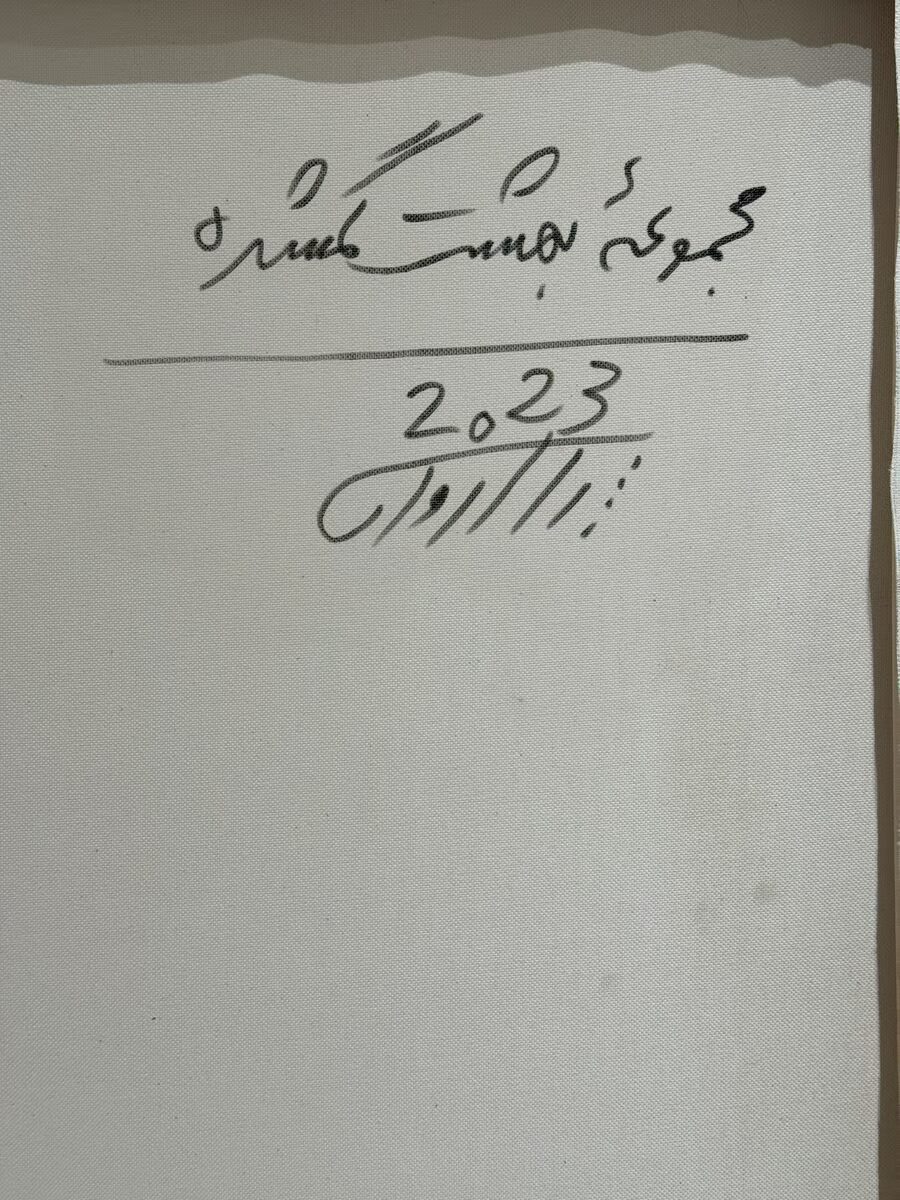 مجموعهٔ بهشت گمشده
2023